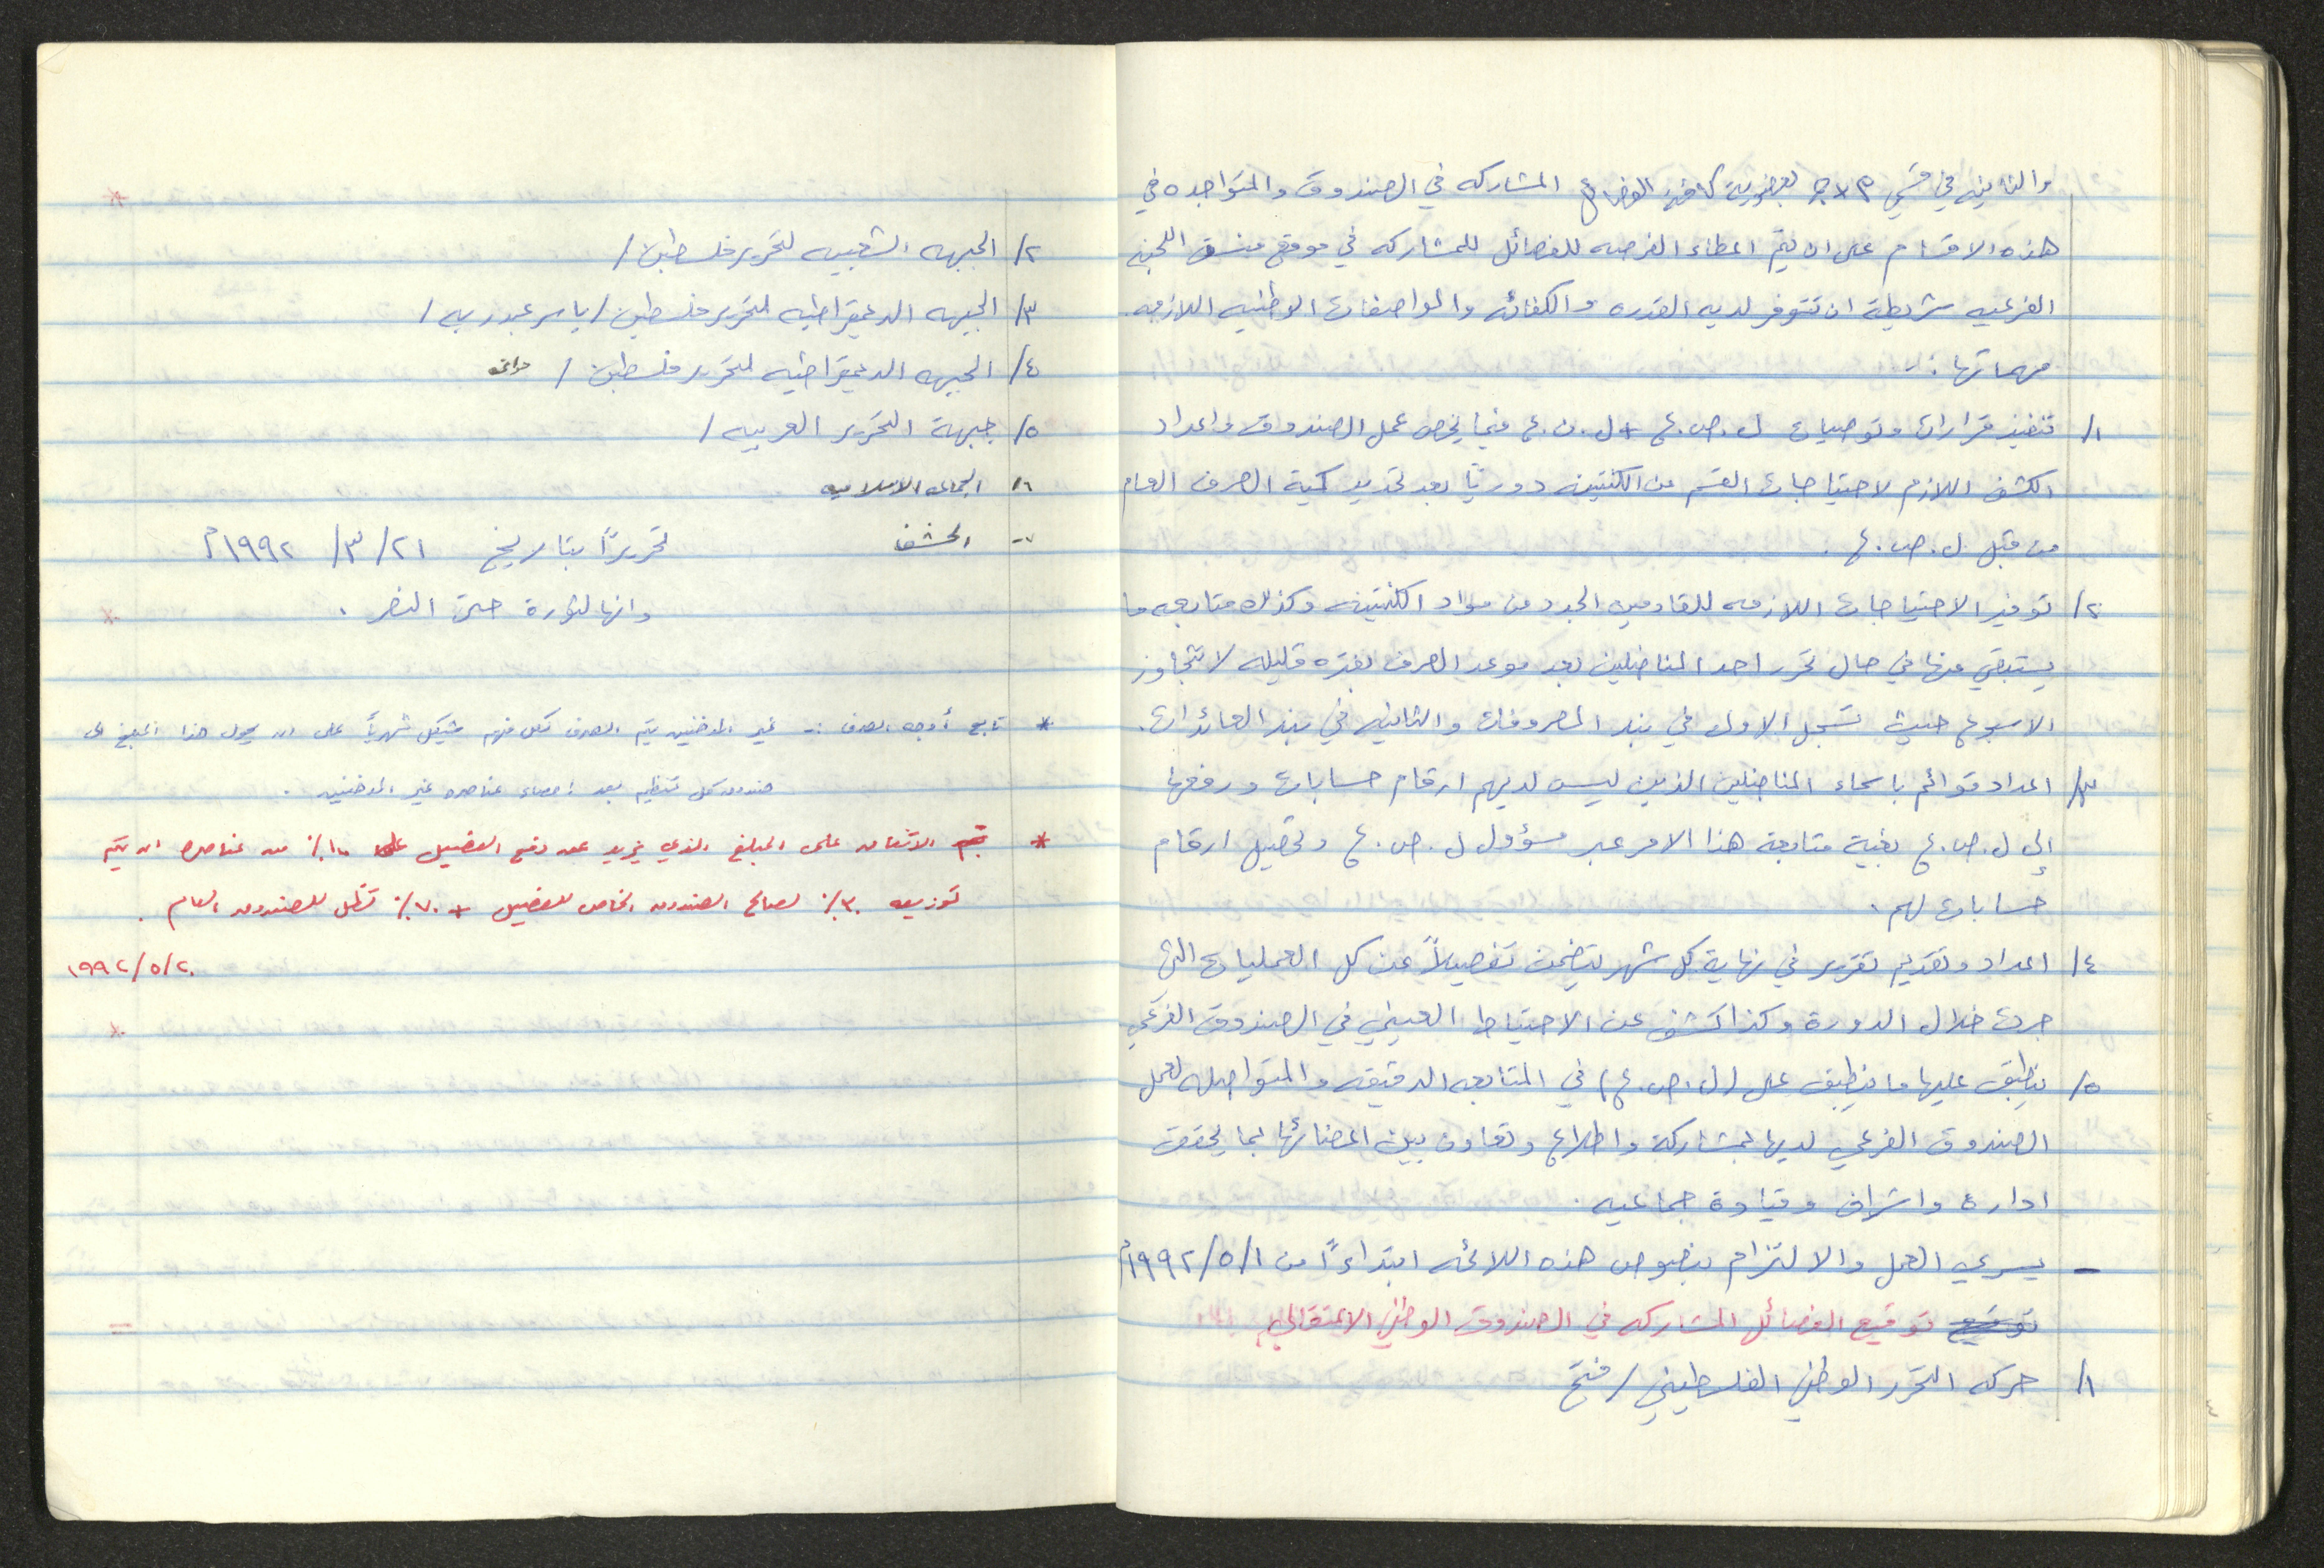 والثانيه في قسمي بعضوية كافة الفصائل المشاركه في الصندوق والمتواجده في
هذه الاقسام على ان يتم اعطاء الفرصه للفصائل للمشاركه في موقع منسق اللجنه
الفرعيه شريطة ان تتوفر لديه القدره والكفائه والمواصفات الوطنيه اللازمه.
مهماتها :-
١/ تنفيذ قرارات وتوصيات ل.ص.ع + ل.ن.ع فيما يخص عمل الصندوق واعداد
الكشف اللازم لاحتياجات القسم من الكنتينه دوريًا بعد تحديد كمية الصرف العام
من قبل ل.ص.ع.
٢/ توفير الاحتياجات اللازمه للقادمين الجدد من مواد الكنتينه وكذلك متابعه ما
يستبقى منها في حال تحرر احد المناضلين بعد موعد الصرف بفتره قليله لا تتجاوز
الاسبوع حيث تسجل الاولى في بند المصروفات والثانيه في بند العائدات.
٣/ اعداد قوائم باسماء المناضلين الذين ليس لديهم ارقام حسابات ورفعها
إلى ل.ص.ع بغية متابعة هذا الامر عبر مسؤول ل.ص.ع وتحصيل ارقام
حسابات لهم.
٤/ اعداد وتقديم تقرير في نهاية كل شهر يتضمن تفصيلاً عن كل العمليات التي
جرت خلال الدورة وكذا كشف عن الاحتياط العيني في الصندوق الفرعي
٥/ ينطبق عليها ما ينطبق على (ل.ص.ع) في المتابعه الدقيقه والمتواصله لعمل
الصندوق الفرعي لديها بمشاركة واطلاع وتعاون بين اعضائها بما يحقق
ادارة واشراف وقيادة جماعيه.
- يسري العمل والالتزام بنصوص هذه اللائحه ابتداءً من ١/٥/١٩٩٢م
توقيع الفصائل المشاركه في الصندوق الوطني الاعتقالي
١/ حركه التحرر الوطني الفلسطيني / فتح
٢/ الجبهه الشعبيه لتحرير فلسطين /
٣/ الجبهه الديمقراطيه لتحرير فلسطين / ياسر عبدربه /
٤/ الجبهه الديمقراطيه لتحرير فلسطين / حواتمه
٥/ جبهة التحرير العربيه /
٦/ الجماعه الاسلاميه
٧- الحشف
تحريرًا بتاريخ ٢١/٣/١٩٩٢م
وانها لثورة حتى النصر.
* تابع أوجه الصرف :- غير المدخنين يتم الصرف لكل منهم شيكل شهرياً على ان يحول هذا المبلغ الى
صندوق كل تنظيم بعد إحصاء عناصره غير المدخنين.
* تم الاتفاق على المبلغ الذي يزيد عن دفع الفصيل على ١٠٪ من عناصره ان يتم
توزيعه ٣٠٪ لصالح الصندوق الخاص للفصيل + ٧٠٪ تظل للصندوق العام.
٢٠/٥/١٩٩٢